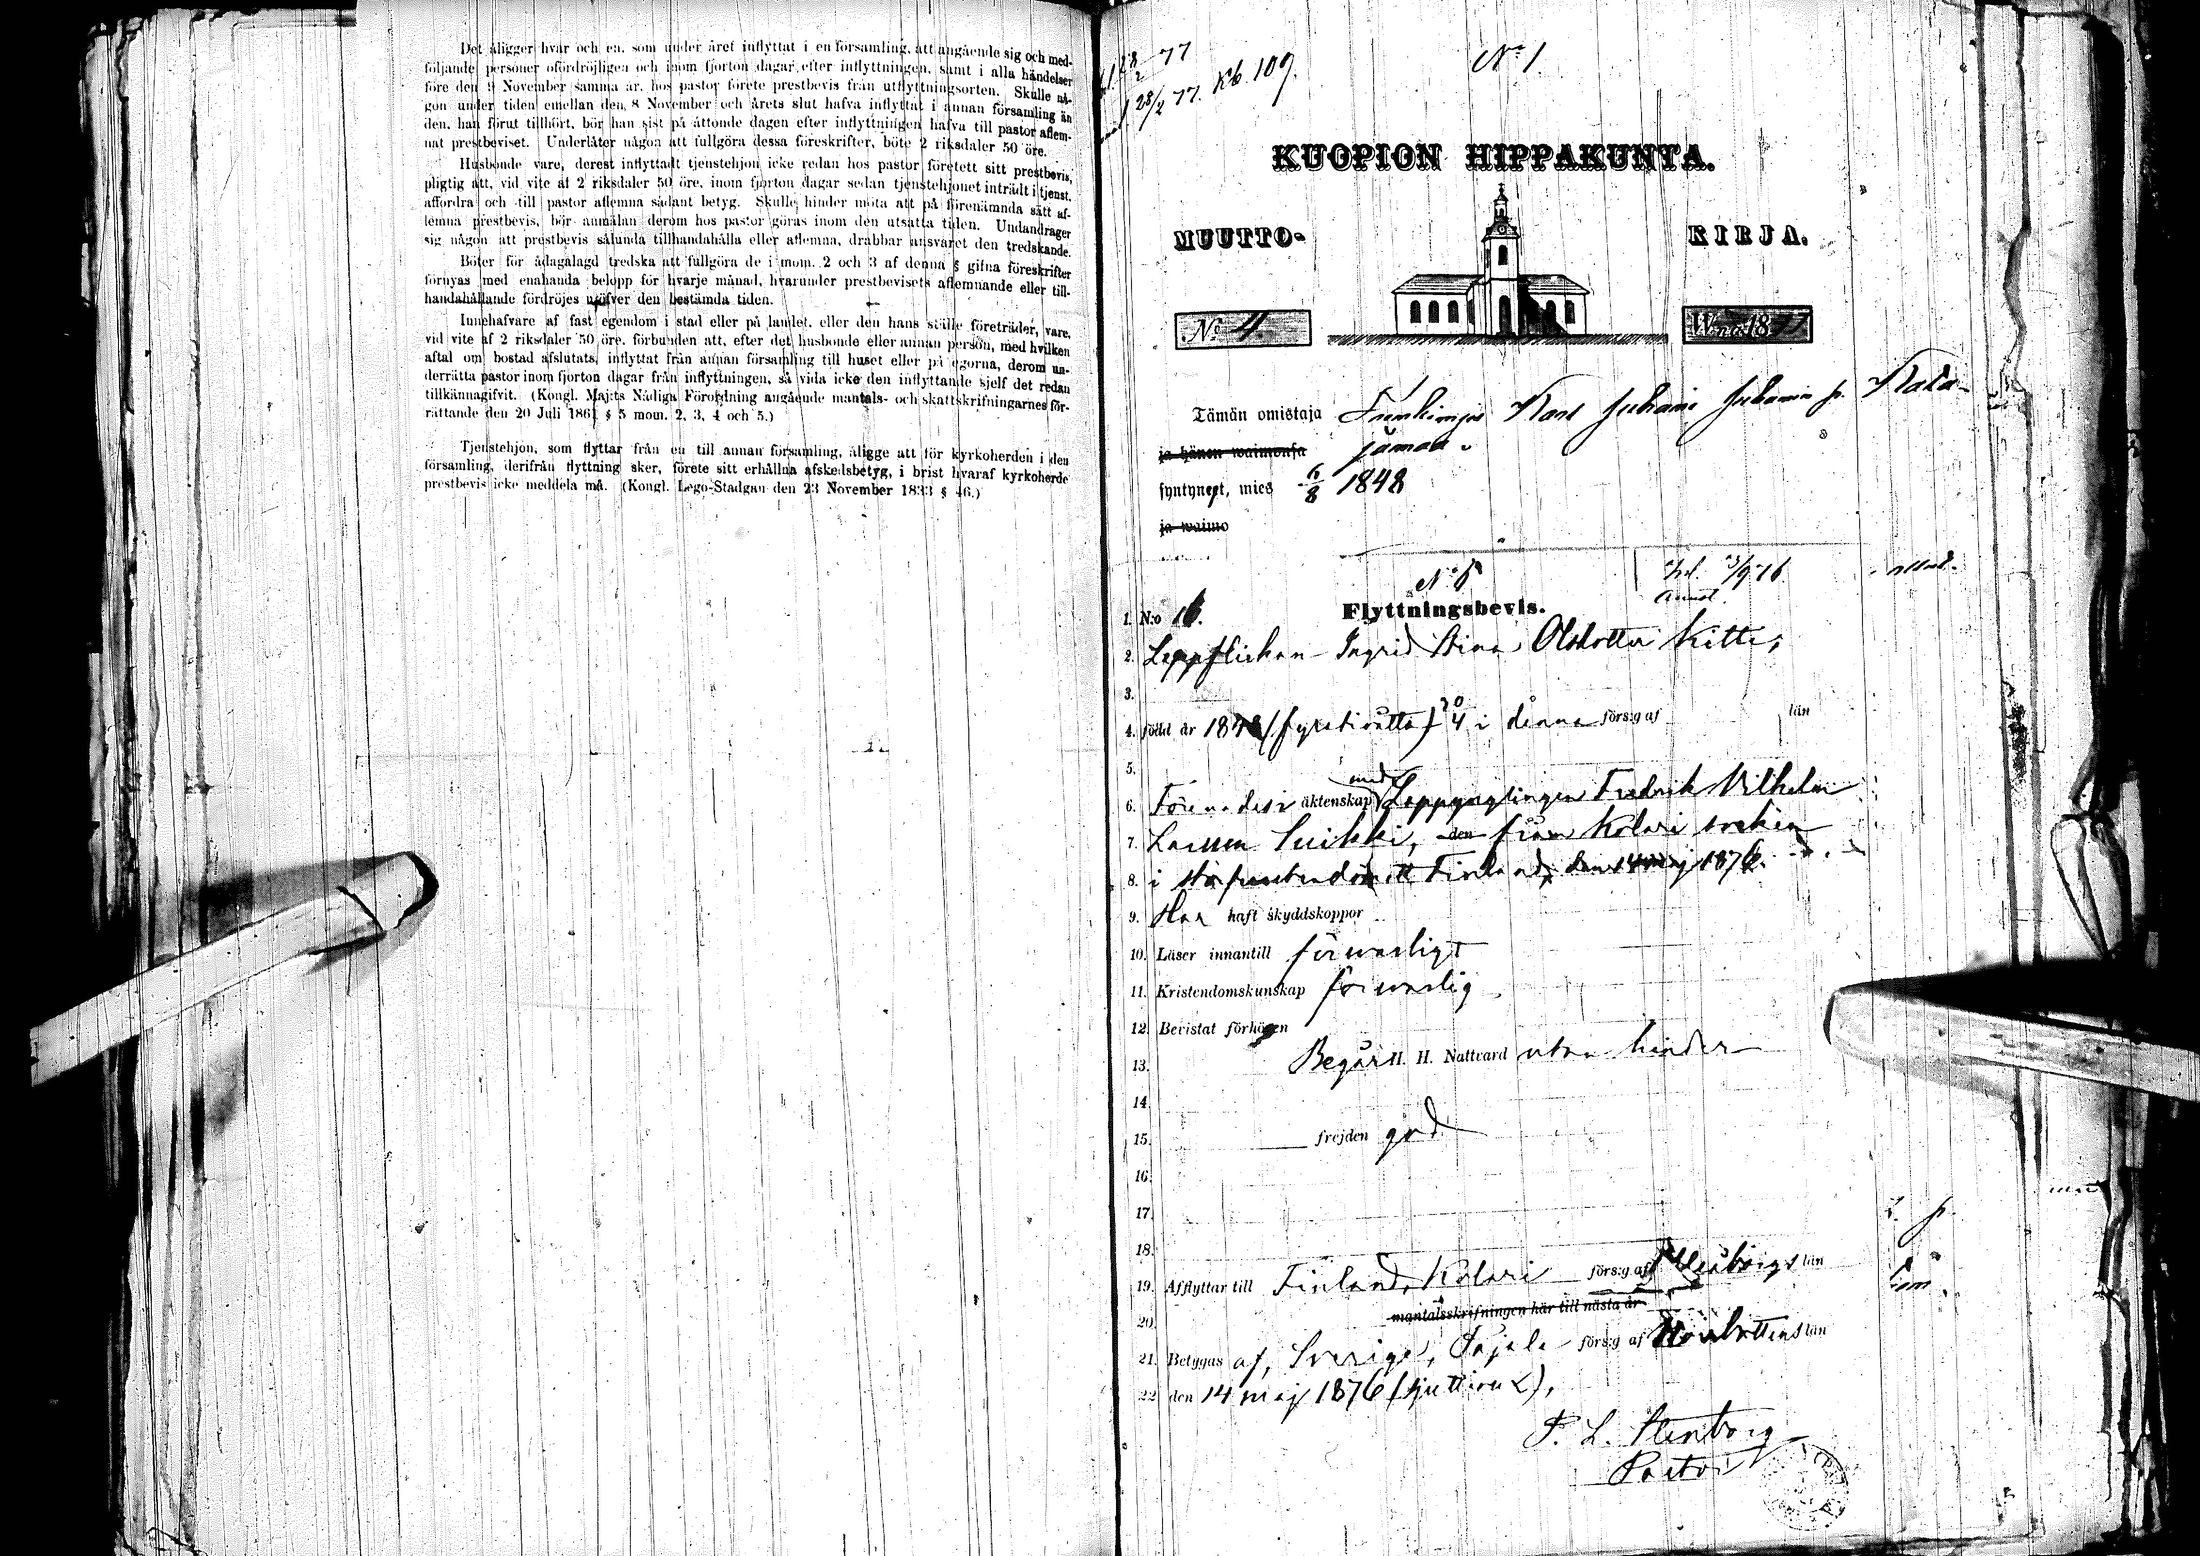 Det åligger hvar och en, som under året inflyttat i en församling, att angående sig och med-
följande personer ofördröjligen och inom fjorton dagar efter inflyttningen, samt i alla händelser
före den 9 November samma år, hos pastor förete prestbevis från utflyttningsorten. Skulle nå-
gon under tiden emellan den 8 November och årets slut hafva inflyttat i annan församling än
den, han förut tillhört, bör han sist på åttonde dagen efter inflyttningen hafva till pastor aflem-
nat prestbeviset. Underlåter någon att fullgöra dessa föreskrifter, böte 2 riksdaler 50 öre.
Husbonde vare, derest inflyttadt tjenstehjon icke redan hos pastor företett sitt prestbevis,
pligtig att, vid vite af 2 riksdaler 50 öre, inom fjorton dagar sedan tjenstehjonet inträdt i tjenst,
affordra och till pastor aflemna sådant betyg. Skulle hinder möta att på förenämnda sätt af-
lemna prestbevis, bör anmälan derom hos pastor göras inom den utsatta tiden. Undandrager
sig någon att prestbevis sålunda tillhandahålla eller aflemna, drabbar ansvaret den tredskande.
Böter för ådagalagd tredska att fullgöra de i mom. 2 och 3 af denna § gifna föreskrifter
förnyas med enahanda belopp för hvarje månad, hvarunder prestbevisets aflemnande eller till-
handahållande fördröjes utöfver den bestämda tiden.
Innehafvare af fast egendom i stad eller på landet, eller den hans ställe företräder, vare,
vid vite af 2 riksdaler 50 öre, förbunden att, efter det husbonde eller annan person, med hvilken
aftal om bostad afslutats, inflyttat från annan församling till huset eller på egorna, derom un-
derrätta pastor inom fjorton dagar från inflyttningen, så vida icke den inflyttande sjelf det redan
tillkännagifvit. (Kongl. Maj:ts Nådiga Förordning angående mantals- och skattskrifningarnes för-
rättande den 20 Juli 1861 § 5 mom. 2, 3, 4 och 5.)
Tjenstehjon, som flyttar från en till annan församling, åligge att för kyrkoherden i den
församling, derifrån flyttning sker, förete sitt erhållna afskedsbetyg, i brist hvaraf kyrkoherde
prestbevis icke meddela må. (Kongl. Lego-Stadgan den 23 November 1833 § 46.)
77
28/2 77. Kb. 109.
No 1
KUOPION HIPPAKUNTA.
MUUTTO- KIRJA.
No 4. W:na 1877
Tämän omistaja Karl Juhani
ja hänen waimonsa
syntynyt, mies 6/8 1848
ja waimo
No 8
Flyttningsbevis.
1. N:o 16.
2. Lappflickan Ingrid Stina Olsdotter Kitti,
3.
4. född år 1848 (fyratioåtta) 20/4 i denna förs:g af län
5.
6. Förenades i äktenskap med Lappynglingen Fredrik Vilhelm
7. Larsson Suikki, den från Kolari socken
8. i storfurstendömett Finland, den 14 maj 1876.
9. Har haft skyddskoppor
10. Läser innantill försvarligt
11. Kristendomskunskap försvarlig
12. Bevistat förhören
13. Begår H. H. Nattvard utan hinder
14.
15. frejden god
16.
17.
18.
19. Afflyttar till Finland, Kolari förs:g af Uleåborgs län
20. mantalsskrifningen här till nästa år
21. Betygas af, Sverige, Pajala förs:g af Norrbottens län
22. den 14 maj 1876 (sjuttiosex),
P. L. Stenborg
Pastor